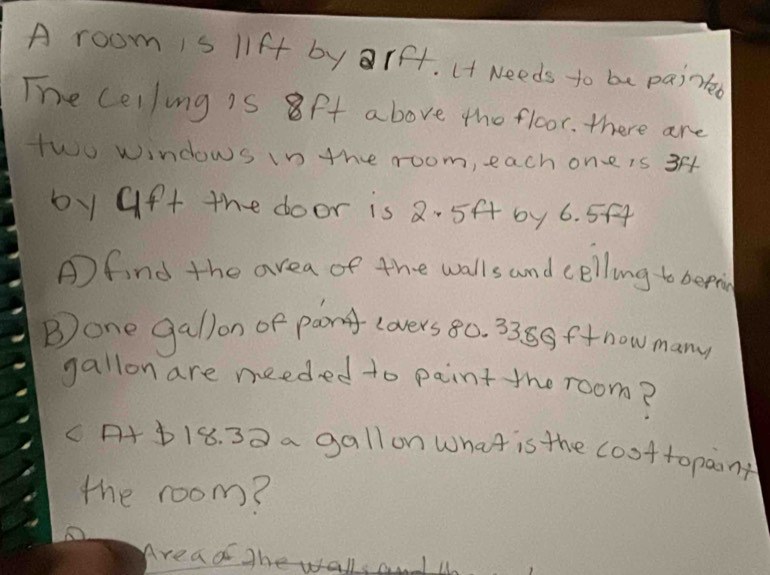 A room is 11ft by 21ft. It Needs to be painted
The ceiling is 8ft above the floor. there are
two windows in the room, each one is 3ft
by 4ft the door is 2.5ft by 6.5ft
A) find the area of the walls and celling to be
B) one gallon of paint covers 80.33 sq ft how many
gallon are needed to paint the room?
C At $18.32 a gallon what is the cost to paint
the room?
Area of the walls and